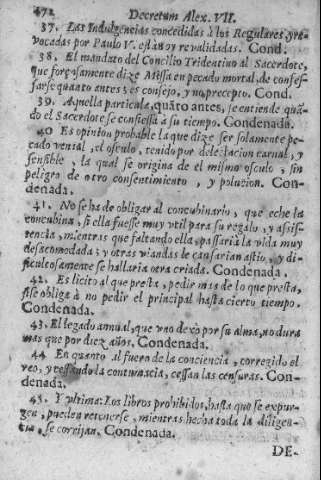 472 Decretum Alex. VII.
37. Las Indulgencias concedidas à los Regulares, y re-
vocadas por Paulo V. estàn oy revalidadas. Cond.
38. El mandato del Concilio Tridentino al Sacerdote,
que forçosamente dize Missa en pecado mortal, de confes-
sarse quanto antes; es consejo, y no precepto. Cond.
39. Aquella particula, quãto antes, se entiende quã-
do el Sacerdote se confiessa à su tiempo. Condenada.
40 Es opinion probable la que dize ser solamente pe-
cado venial, el osculo, tenido por delectacion carnal, y
sensible, la qual se origina de el mismo osculo, sin
peligro de otro consentimiento, y polucion. Con-
denada.
41. No se ha de obligar al concubinario, que eche la
concubina, si ella fuesse muy vtil para su regalo, y assis-
tencia, mientras que faltando ella, passaria la vida muy
desacomodada; y otras viandas le causarian astio, y di-
ficultosamente se hallaria otra criada. Condenada.
42. Es licito al que presta, pedir mas de lo que presta,
si se obliga à no pedir el principal hasta cierto tiempo.
Condenada.
43. El legado annual, que vno dexò por su alma, no dura
mas que por diez años. Condenada.
44 En quanto al fuero de la conciencia, corregido el
reo, y cessando la contumacia, cessan las censuras. Con-
denada.
45. Y vltima: Los libros prohibidos, hasta que se expur-
gen, pueden retenerse, mientras hecha toda la diligen-
cia, se corrijan. Condenada.
DE-